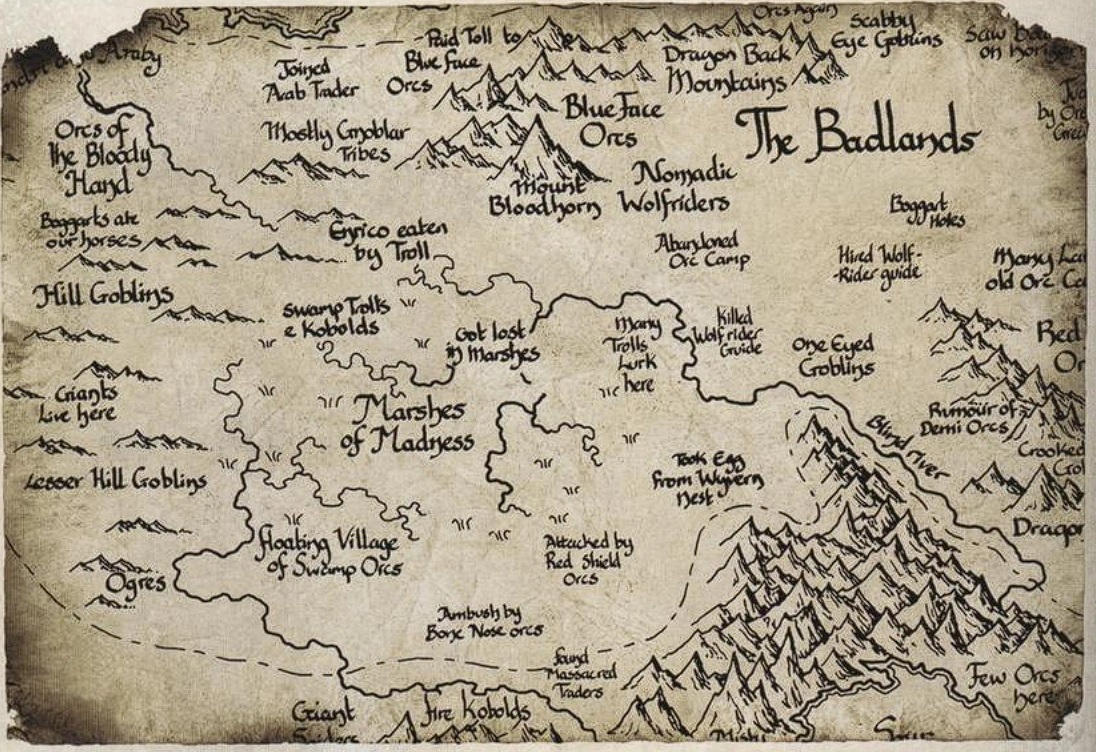 Araby
Joined
Arab Trader
Paid Toll to
Blue Face
Orcs
Orcs Again
Dragon Back
Mountains
Scabby
Eye Goblins
Saw
on horizon
by Orc
Blue Face
Orcs
The Badlands
Orcs of
the Bloody
Hand
Mostly Gnoblar
Tribes
Mount
Bloodhorn
Nomadic
Wolfriders
Boggart
Holes
Boggarts ate
our horses
Enrico eaten
by Troll
Abandoned
Orc Camp
Hired Wolf-
-Rider guide
Many
old Orc
Hill Goblins
Swamp Trolls
& Kobolds
Got lost
in Marshes
Many
Trolls
Lurk
here
Killed
Wolfrider
Guide
One Eyed
Goblins
Red
Or
Giants
Live here
Marshes
of Madness
Rumour of
Demi Orcs
Blind river
Crooked
Lesser Hill Goblins
Took Egg
from Wyvern
Nest
Dragon
floating Village
of Swamp Orcs
Attacked by
Red Shield
Orcs
Ogres
Ambush by
Bone Nose orcs
found
Massacred
Traders
Few Orcs
here
Giant
Spiders
fire Kobolds
Misty